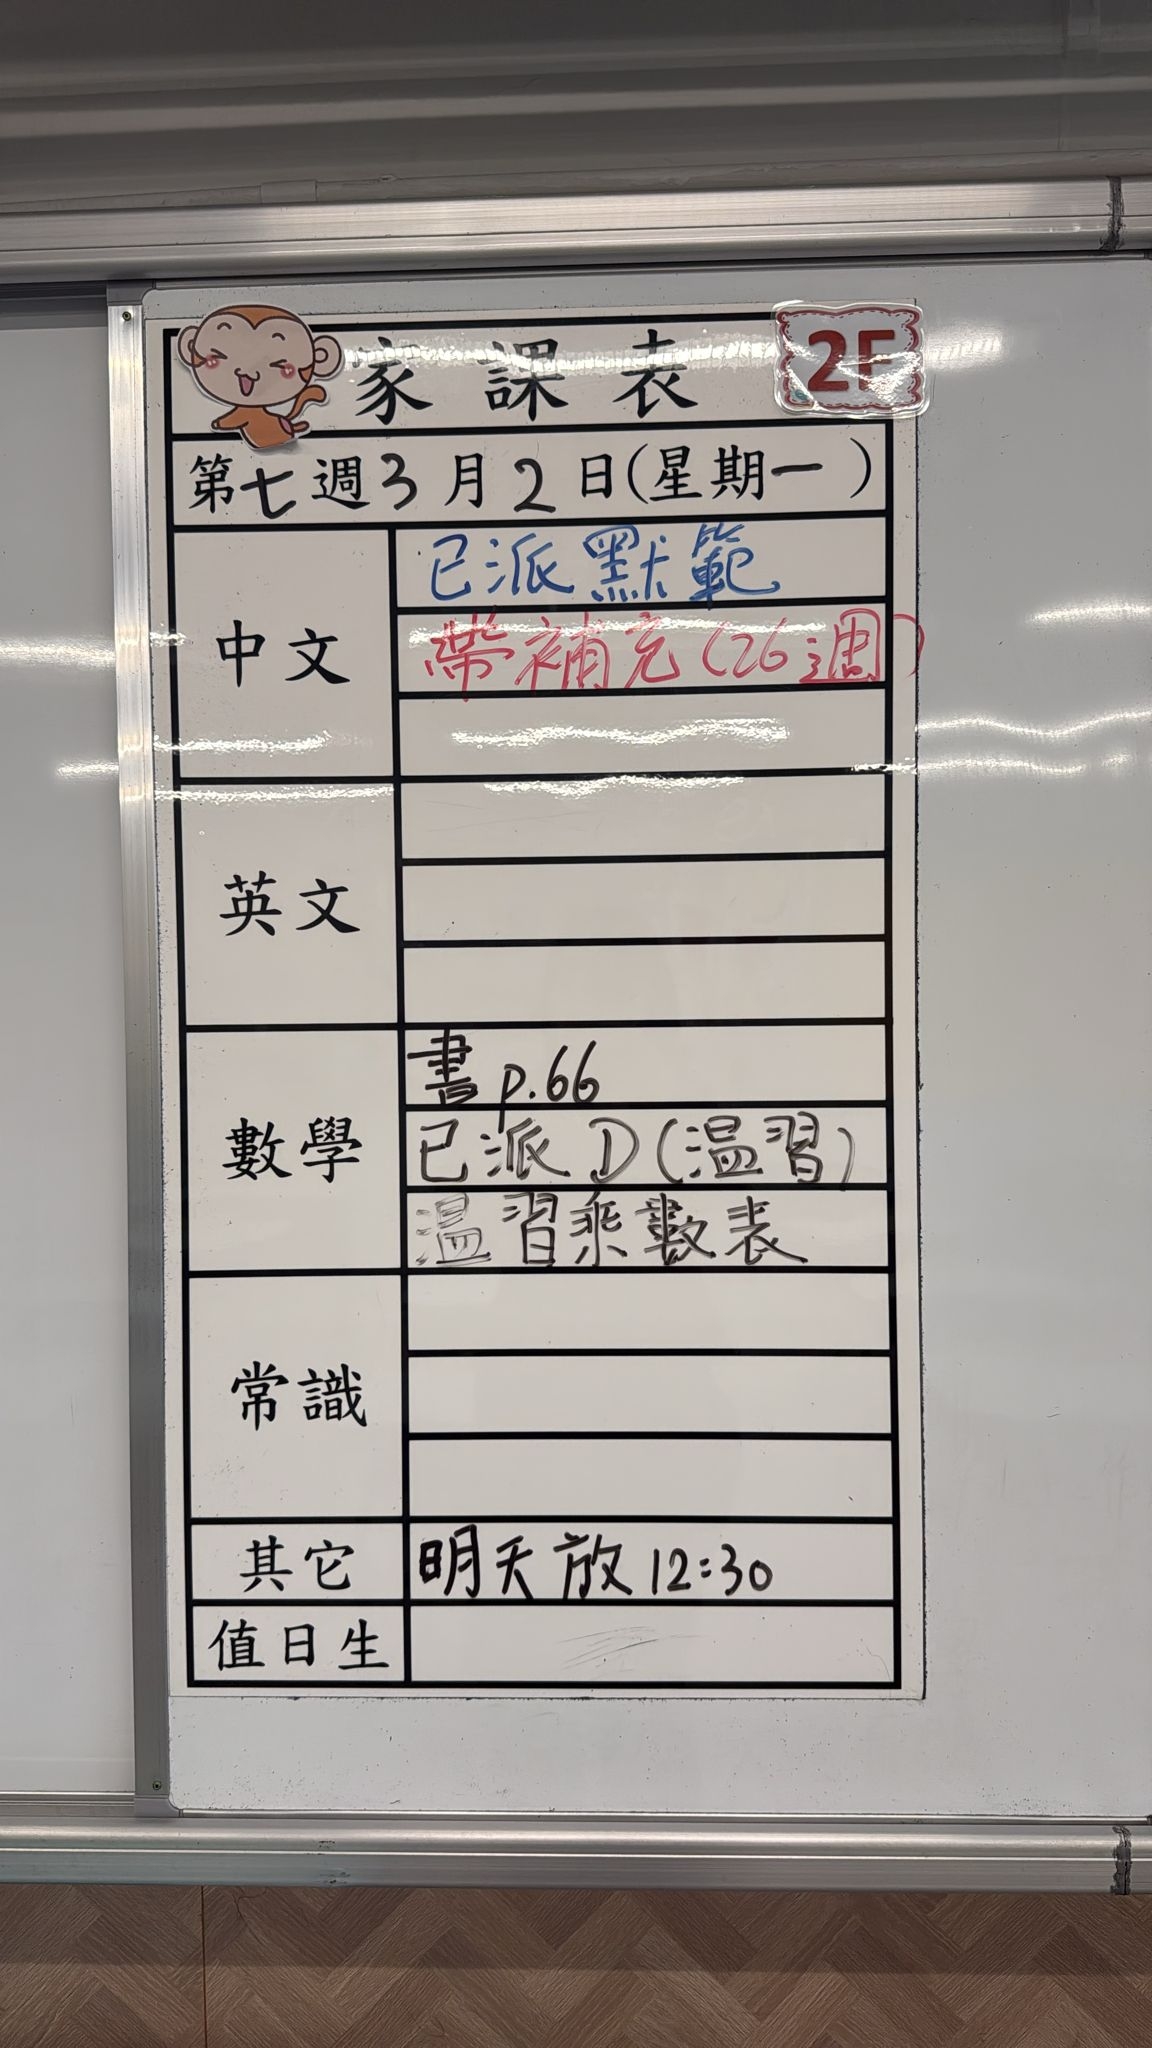 家課表 2F
第七週3月2日(星期一)
中文
已派默範
帶補充(26週)
英文
數學
書p.66
已派D(溫習)
溫習乘數表
常識
其它 明天放12:30
值日生